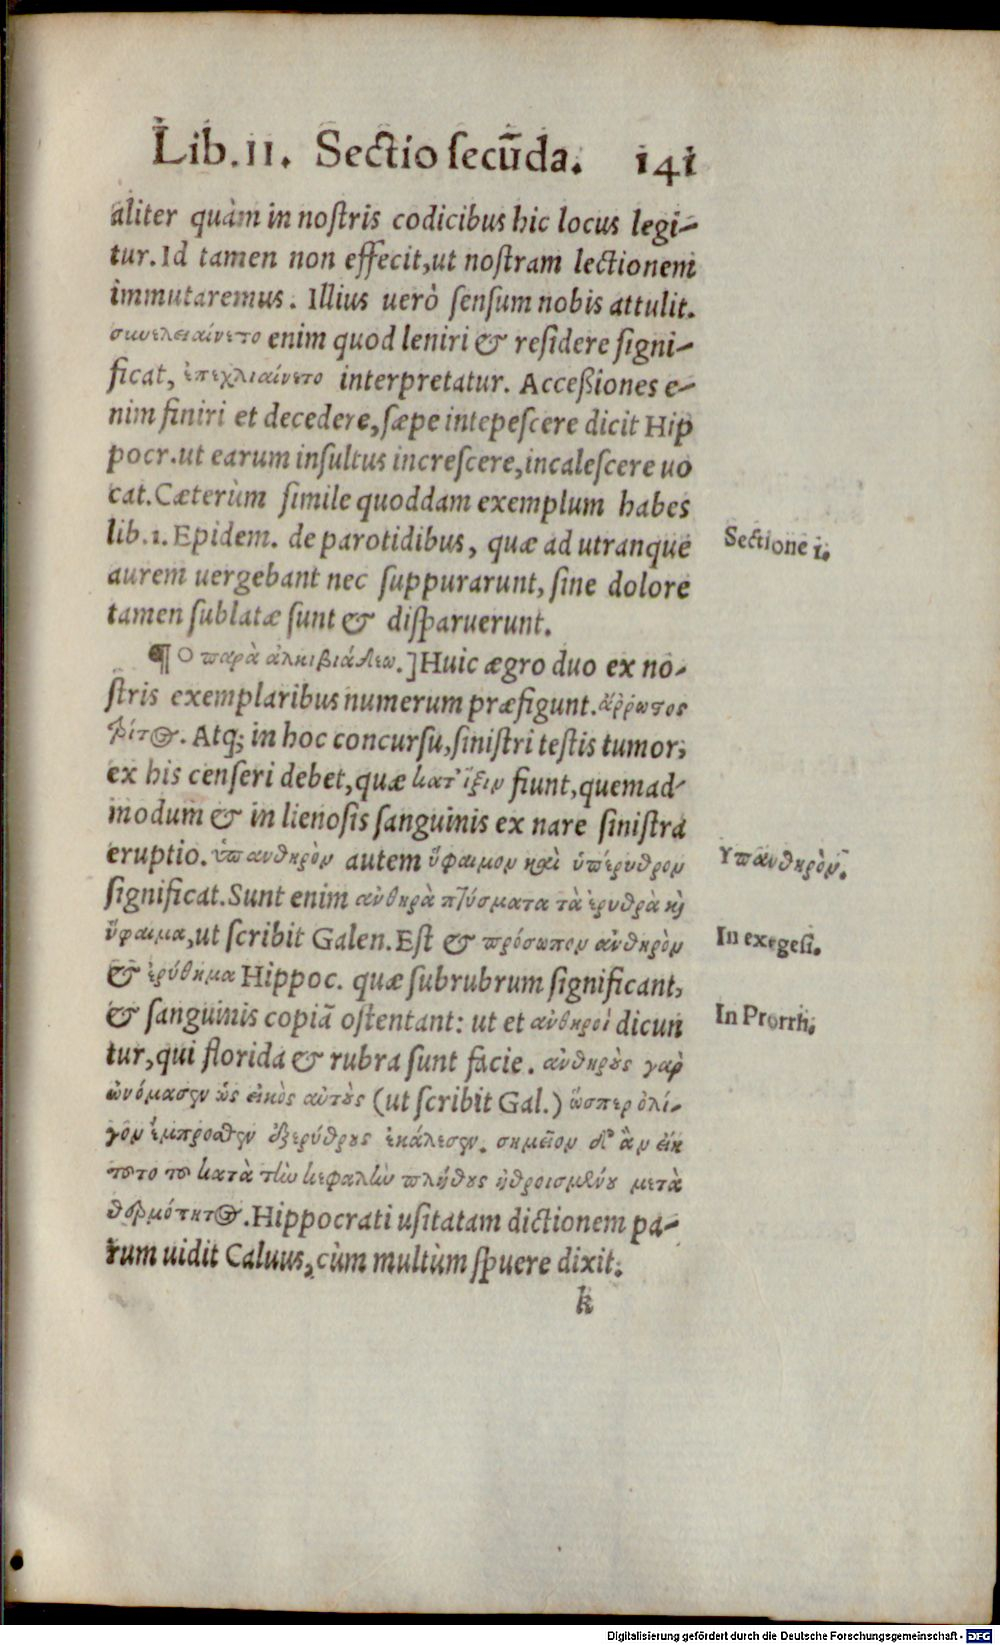 Lib. II. Sectio secũda. 141
aliter quàm in nostris codicibus hic locus legi-
tur. Id tamen non effecit, ut nostram lectionem
immutaremus. Illius uerò sensum nobis attulit.
συνελειαίνετο enim quod leniri & residere signi-
ficat, ἐπεχλιαίνετο interpretatur. Acceßiones e-
nim finiri et decedere, sæpe intepescere dicit Hip
pocr. ut earum insultus increscere, incalescere uo
cat. Cæterùm simile quoddam exemplum habes
lib. 1. Epidem. de parotidibus, quæ ad utranque
Sectione 1.
aurem uergebant nec suppurarunt, sine dolore
tamen sublatæ sunt & disparuerunt.
¶ Ο παρὰ ἀλκιβιάδεω.] Huic ægro duo ex no-
stris exemplaribus numerum præfigunt. ἄῤῥωστος
τρίτος. Atq; in hoc concursu, sinistri testis tumor,
ex his censeri debet, quæ κατ' ἴξιν fiunt, quemad-
modum & in lienosis sanguinis ex nare sinistra
eruptio. ὑπανθηρὸν autem ὕφαιμον καὶ ὑπέρυθρον
Υπανθηρὸν.
significat. Sunt enim ἀνθηρὰ πτύσματα τὰ ἐρυθρὰ κὶ
ὕφαιμα, ut scribit Galen. Est & πρόσωπον ἀνθηρὸν
In exegesi.
& ἐρύθημα Hippoc. quæ subrubrum significant,
& sanguinis copiã ostentant: ut et ἀνθηροὶ dicun
In Prorrh.
tur, qui florida & rubra sunt facie. ἀνθηροὺς γαρ
ὠνόμασεν ὡς εἰκὸς αὐτοὺς (ut scribit Gal.) ὥσπερ ὀλί-
γον ἔμπροσθεν ἐξερύθρους ἐκάλεσεν. σημεῖον δ' ἂν εἴη
τοῦτο τοῦ κατὰ τὴν κεφαλὴν πλήθους ἠθροισμένου μετὰ
θερμότητος. Hippocrati usitatam dictionem pa-
rum uidit Caluus, cùm multùm spuere dixit.
k
Digitalisierung gefördert durch die Deutsche Forschungsgemeinschaft - DFG